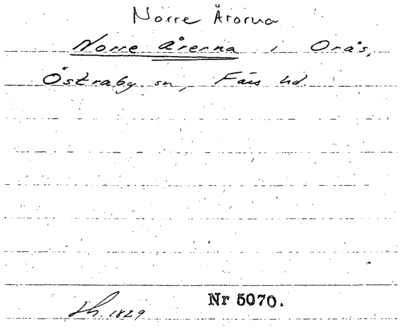 Norre Årorna
Norre Årerna i Orås,
Östraby sn, Färs hd.
Lh. 1829
Nr 5070.